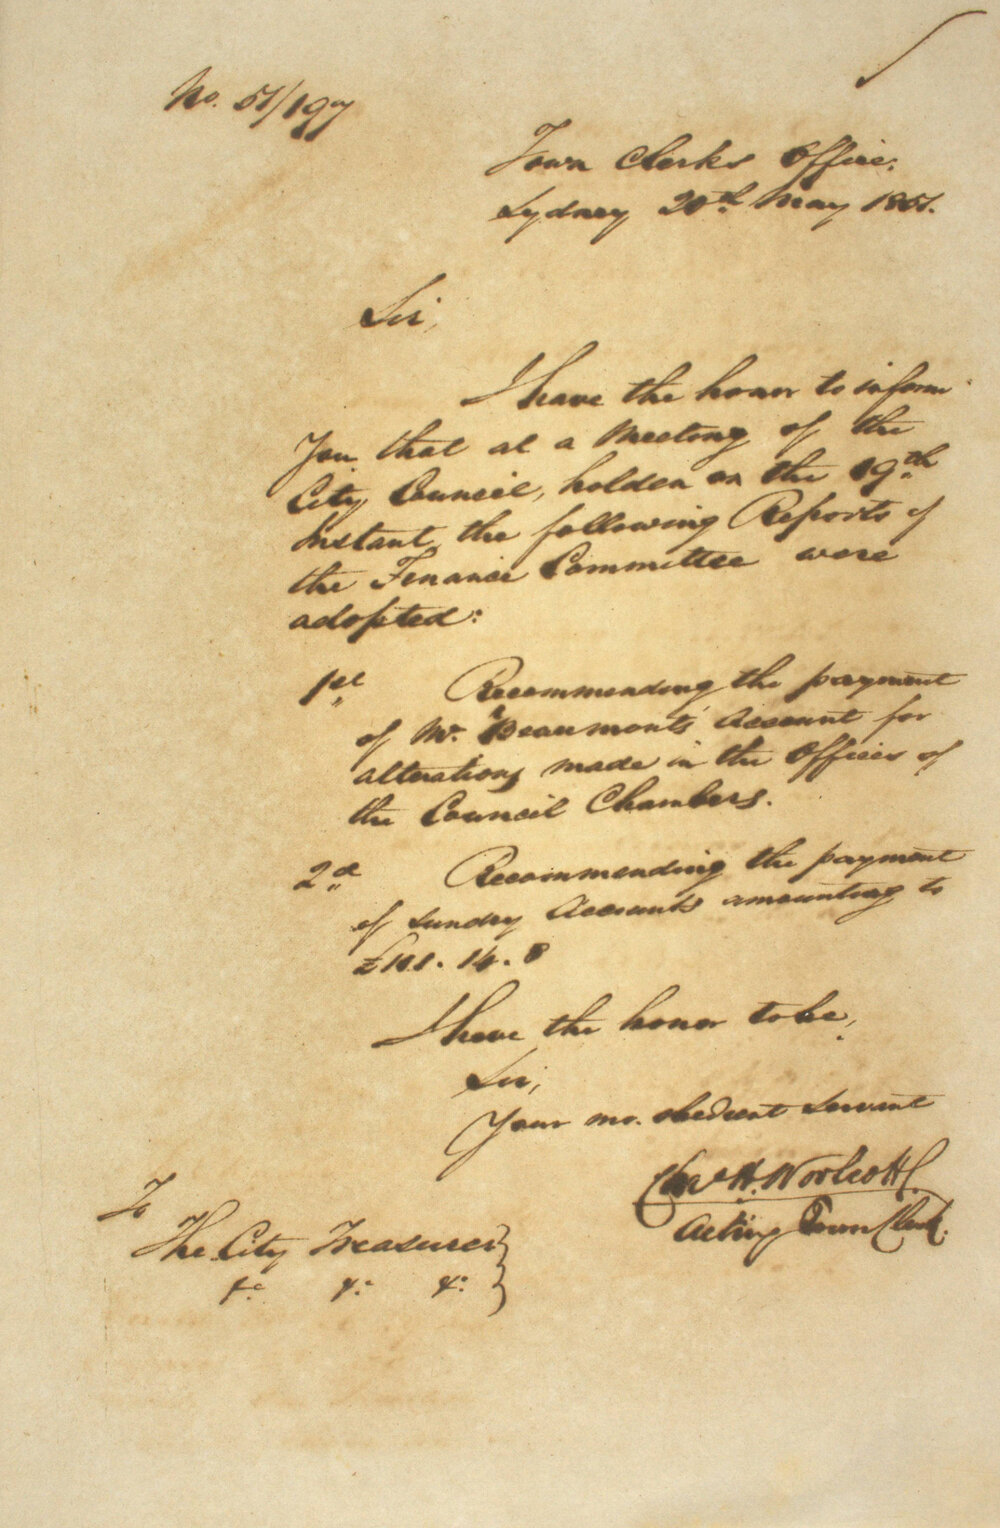 No. 51/197
Town Clerks Office.
Sydney 20th May 1851.
Sir,
I have the honor to inform
You that at a Meeting of the
City Council, holden on the 19th
Instant, the following Reports of
the Finance Committee were
adopted:
1st Recommending the payment
of Mr. Beaumont's Account for
alterations made in the Offices of
the Council Chambers.
2d Recommending the payment
of sundry Accounts amounting to
£101.14.8
I have the honor to be,
Sir,
Your mo. obedient Servant
Chas H. Woolcott.
Acting Town Clerk.
To
The City Treasurer
&c &c &c